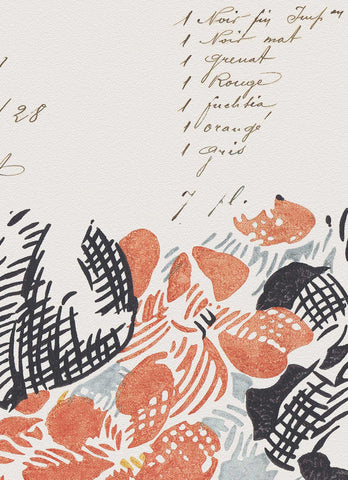 1 Noir fin Imp on
1 Noir mat
1 Grenat
1 Rouge
1 fuchsia
1 orangé
1 Gris
/28
7 pl.